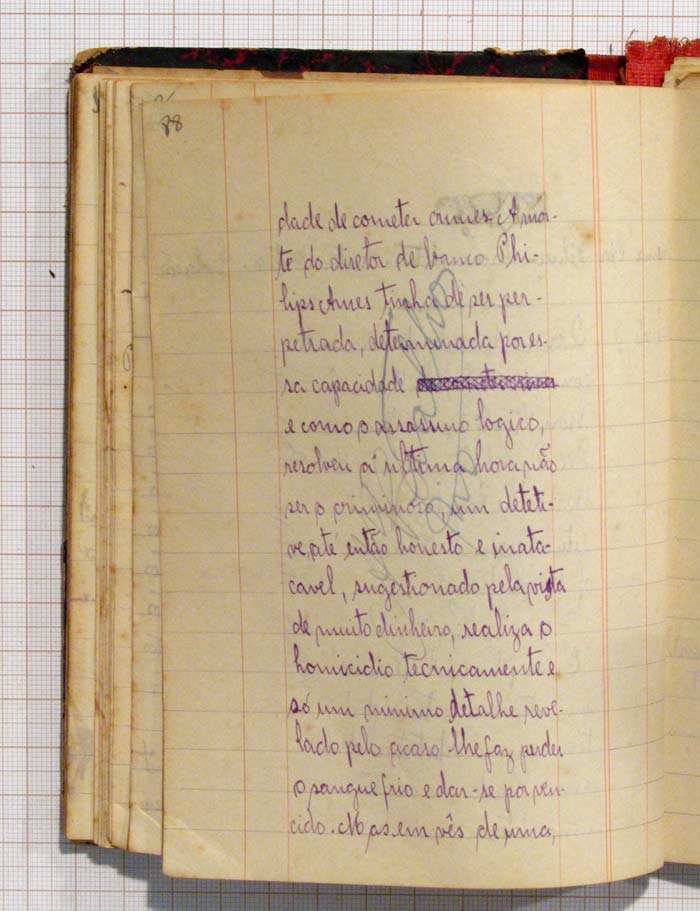 88
dade de cometer crimes. A mor-
te do diretor de banco Phi-
lips Ames tinha de ser per-
petrada, determinada por es-
sa capacidade
e como o assassino logico,
resolveu á ultima hora não
ser o criminoso, um deteti-
ve, até então honesto e inata-
cavel, sugestionado pela vista
de muito dinheiro, realiza o
homicidio tecnicamente e
só um minimo detalhe reve-
lado pelo acaso lhe faz perder
o sangue frio e dar-se por ven-
cido. Mas em vês de uma,